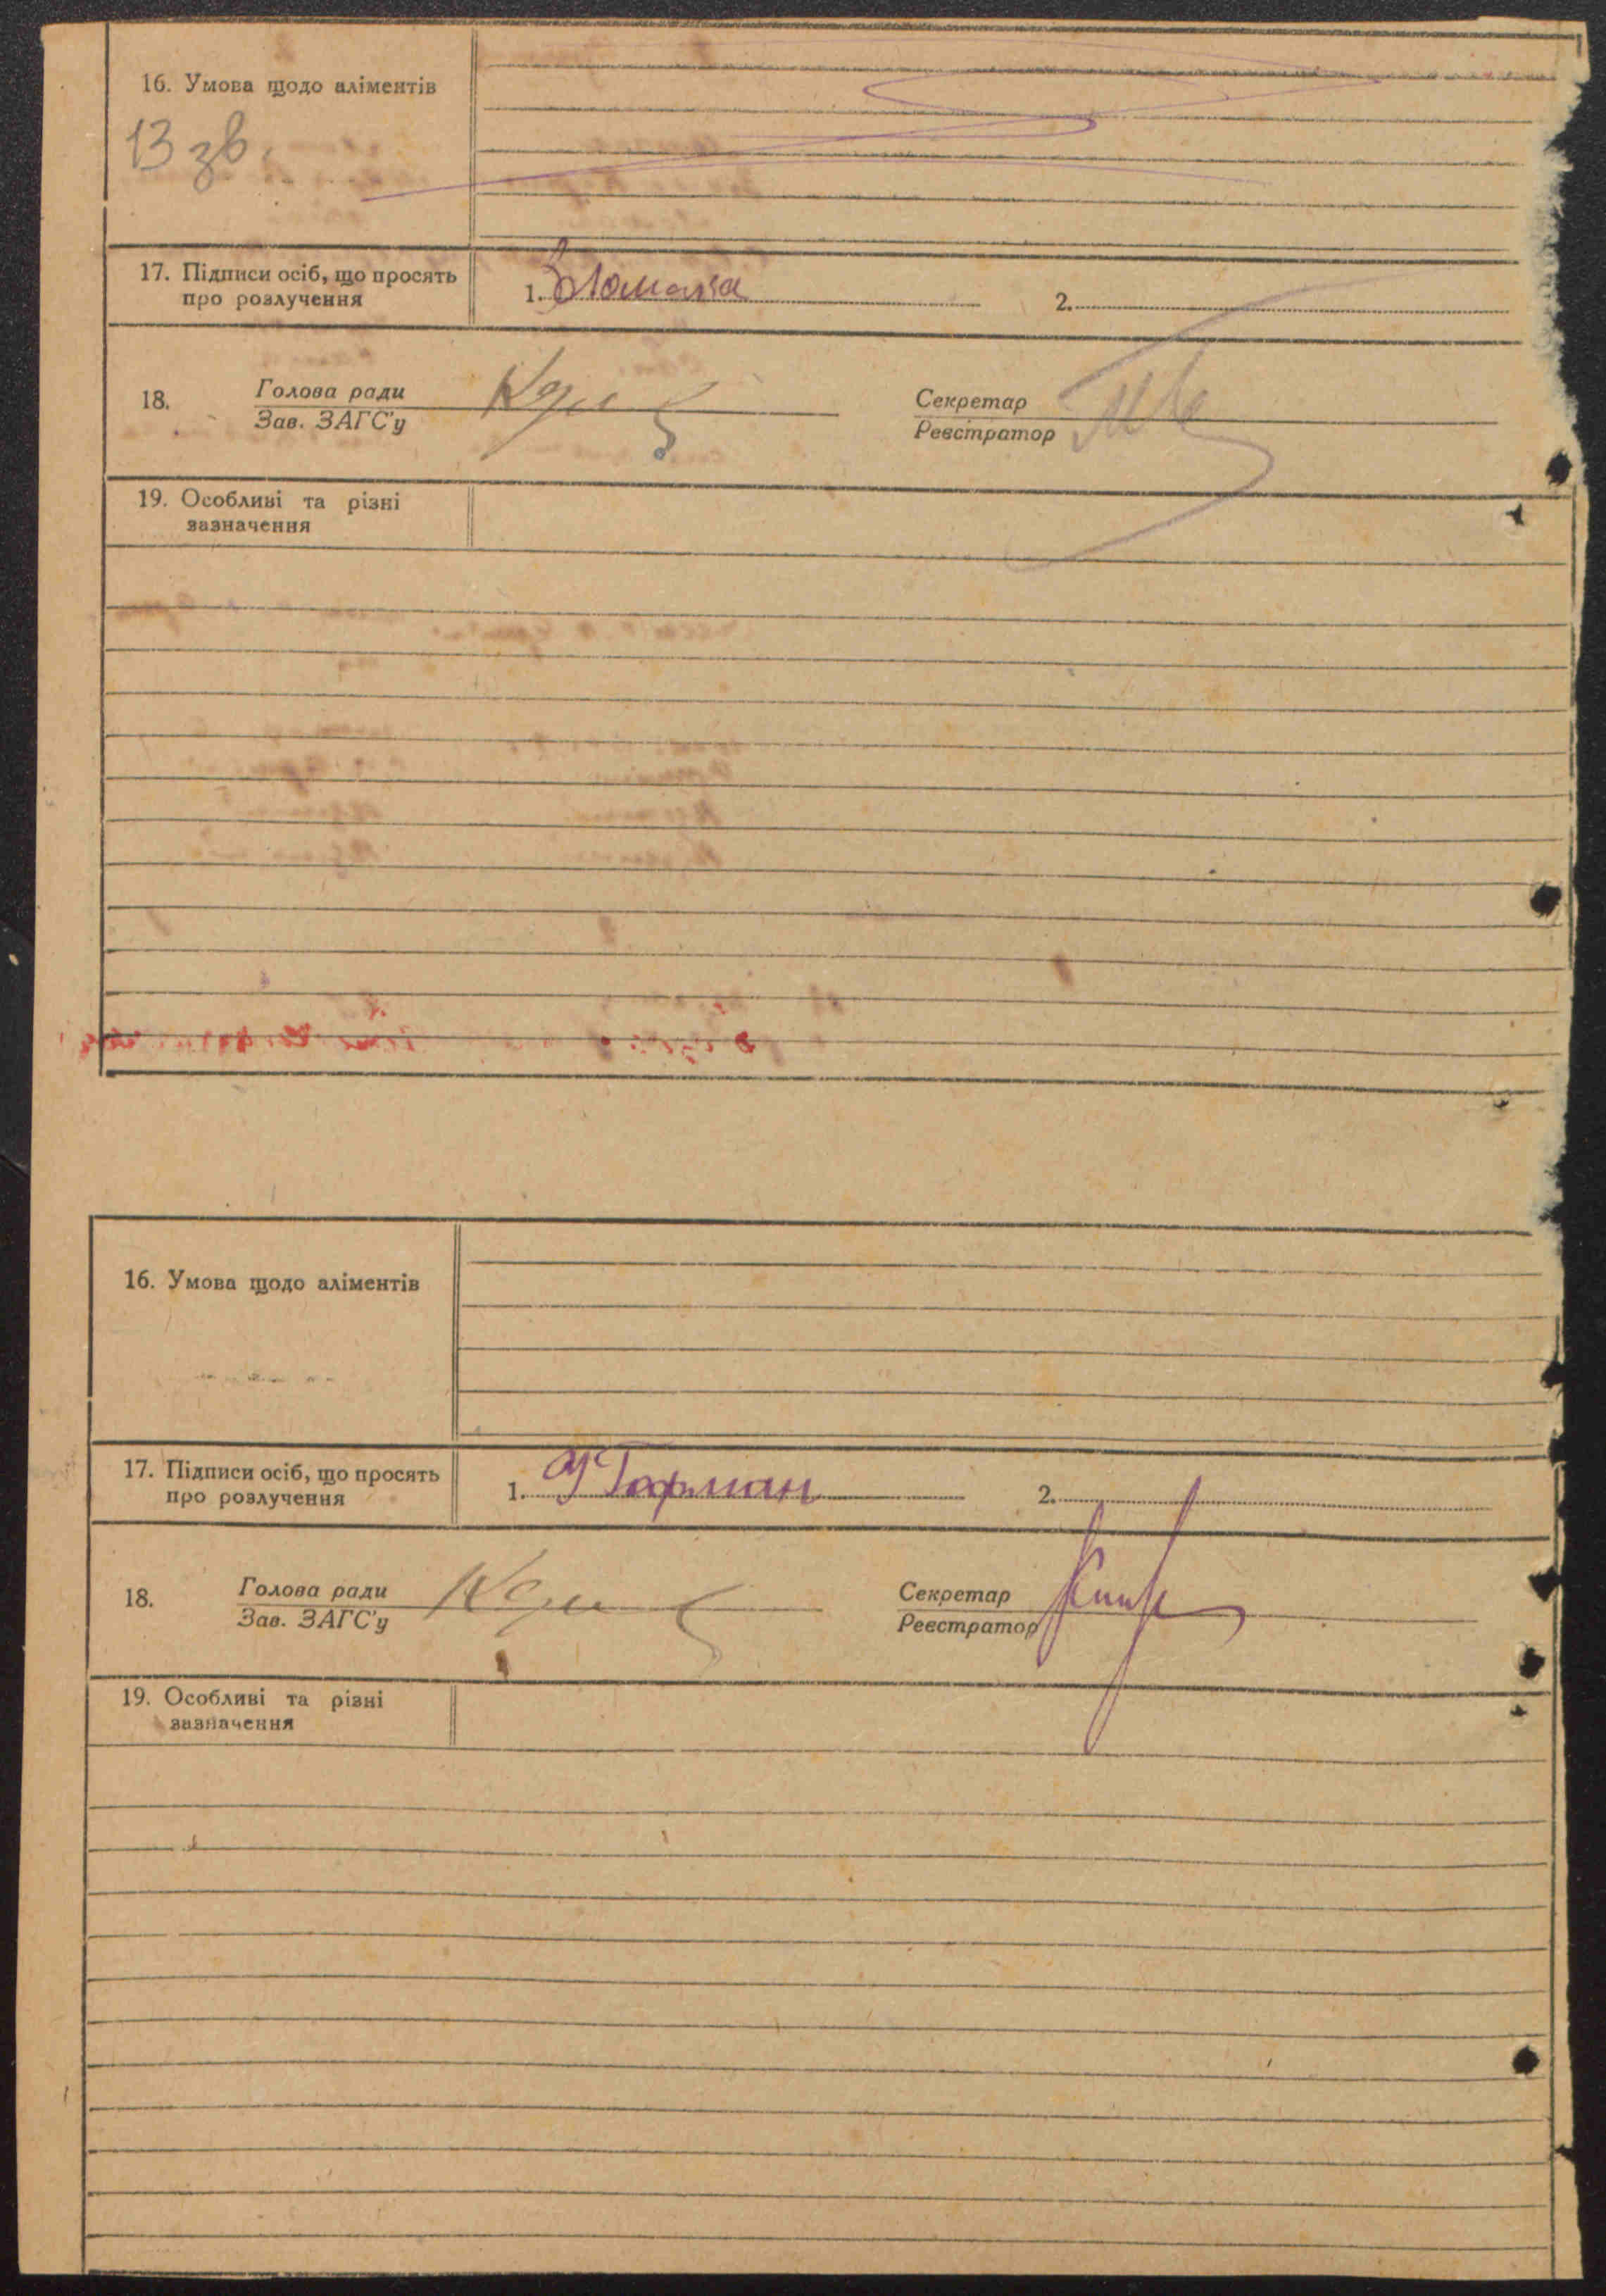 16. Умова щодо аліментів
13 зв.
17. Підписи осіб, що просять
про розлучення
1.
2.
18.
Голова ради
Зав. ЗАГС'у
Секретар
Реєстратор
19. Особливі та різні
зазначення
16. Умова щодо аліментів
17. Підписи осіб, що просять
про розлучення
1. Гофман
2.
18.
Голова ради
Зав. ЗАГС'у
Секретар
Реєстратор
19. Особливі та різні
зазначення